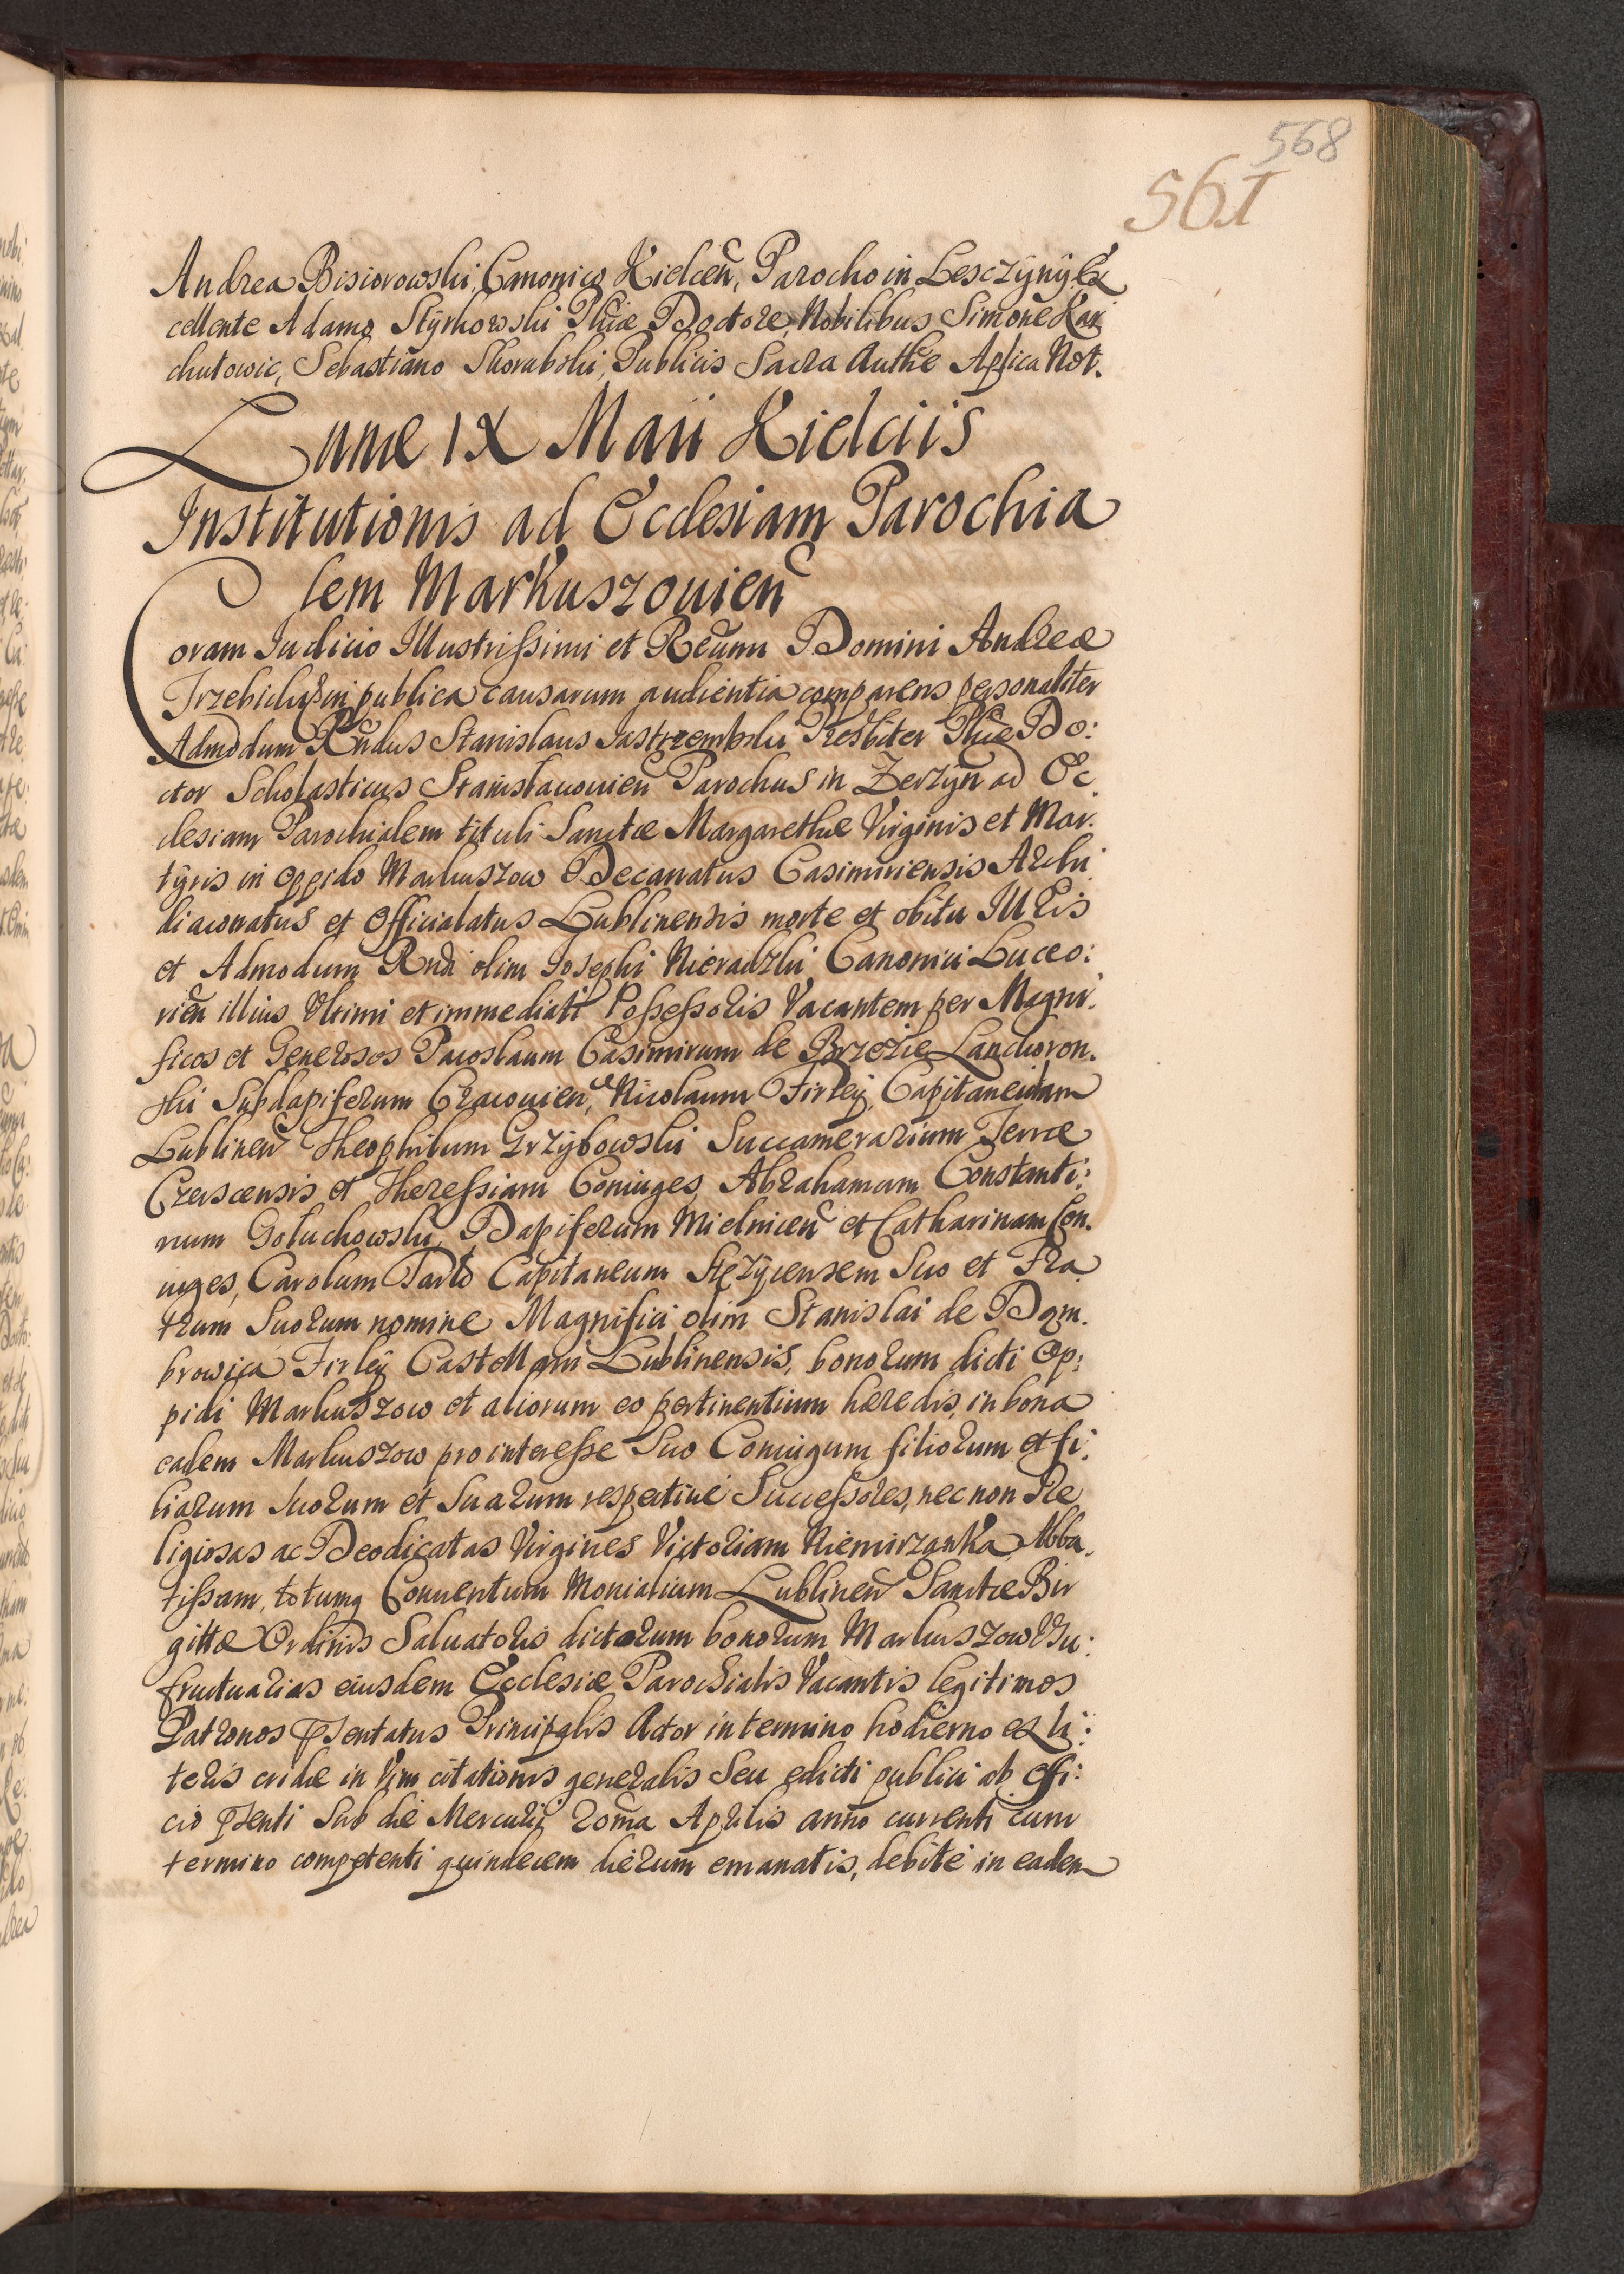 568
561
Andrea Bisiorowski, Canonico Kielceñ, Parocho in Lesczÿnÿ, Ex
cellente Adamo Stÿrkowski Phiæ Doctore, Nobilibus Simone Kar
chutowic, Sebastiano Skorubski, Publicis Sacra Authe Aplica Not.
Lunæ IX Maii Kielciis
Institutionis ad Ecclesiam Parochia
lem Markuszouieñ
Coram Iudicio Illustrissimi et Reũmi Domini Andreæ
Trzebicki, in publica causarum audientia comparens personaliter
Admodum Rñdus Stanislaus Iastrzembski Presbiter Phiæ Do:
ctor Scholasticus Stanislauouieñ Parochus in Zerzÿn ad Ec
clesiam Parochialem tituli Sanctæ Margarethæ Virginis et Mar.
tÿris in oppido Markuszow Decanatus Casimiriensis Archi
diaconatus et Officialatus Lublinensis morte et obitu Ill Eis
et Admodum Rndi olim Iosephi Nieradzki Canonici Luceo:
rieñ illius Vltimi et immediati Possessoris Vacantem per Magni.
ficos et Generosos Pacoslaum Casimirum de Brzezie Lanckoron.
ski Subdapiferum Cracouieñ, Nicolaum Firleÿ, Capitaneidam
Lublineñ Theophilum Grzÿbowski Succamerarium Terræ
Czerscensis et Theressiam Coniuges, Abrahamum Constanti:
num Goluchowski, Dapiferum Mielniceñ et Catharinam Con.
iuges, Carolum Tarło Capitaneum Stęzÿcensem Suo et Fra
trum Suorum nomine Magnifici olim Stanislai de Dąm.
browica Firleÿ Castellani Lublinensis, bonorum dicti Op:
pidi Markuszow et aliorum eo pertinentium hæredis, in bona
eadem Markuszow pro interesse Suo Coniugum filiorum et fi:
liarum Suorum et Suarum respective Successores, nec non Re
ligiosas ac Deodicatas Virgines Victoriam Niemirzanka Abba.
tissam, totumq Conuentum Monialium Lublineñ Sanctæ Bir
gittæ Ordinis Saluatoris dictorum bonorum Markuszow Vsu:
fructuarias eiusdem Ecclesiæ Parochialis Vacantis legitimos
Patronos pſentatus Principalis Actor in termino hodierno ex li:
teris cridæ in Vim citationis generalis Seu edicti publici ab offi:
cio pſenti Sub die Mercurii 20ma Aprilis anno currenti cum
termino competenti quindecem dierum emanatis, debite in eadem